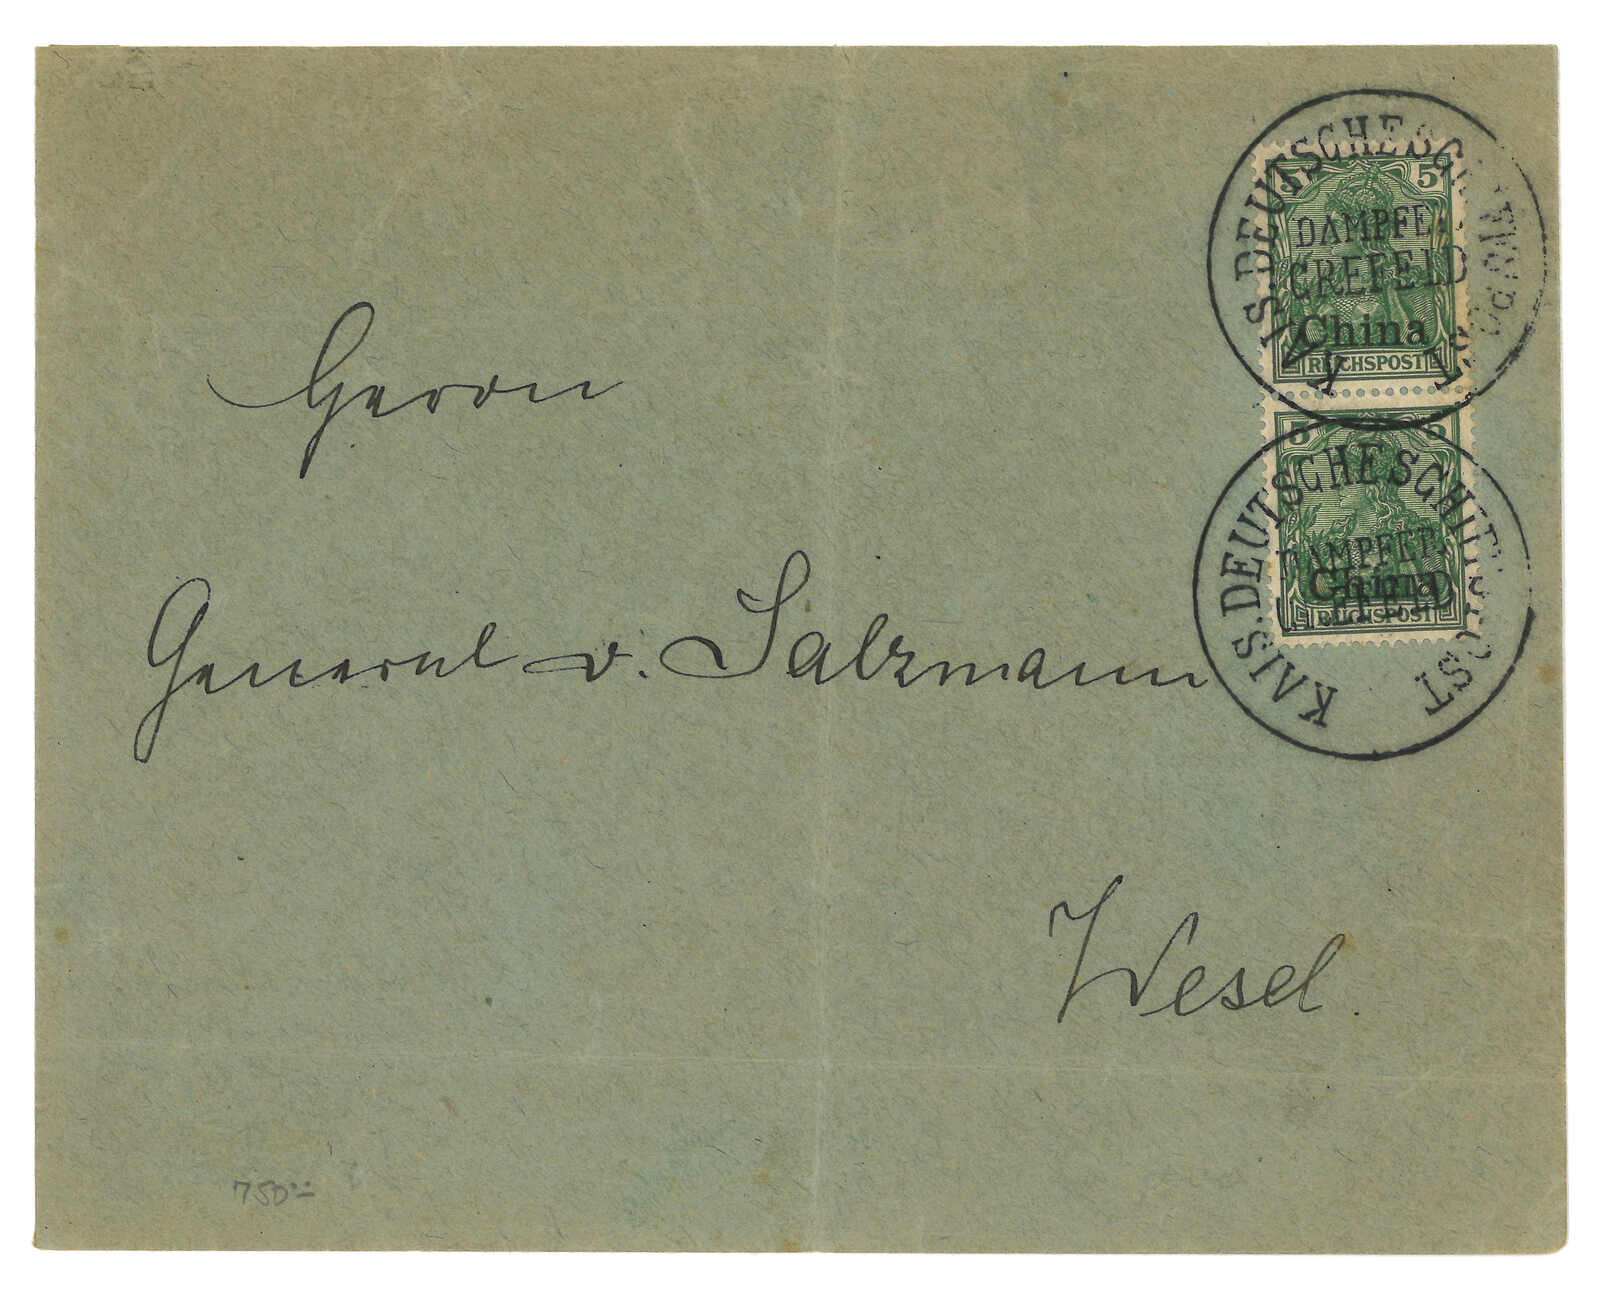 KAIS. DEUTSCHE SCHIFFSPOST
5 5
DAMPFER
CREFELD
China
REICHSPOST
KAIS. DEUTSCHE SCHIFFSPOST
5 5
DAMPFER
China
REICHSPOST
Herrn
General v. Salzmann
Wesel.
750.-